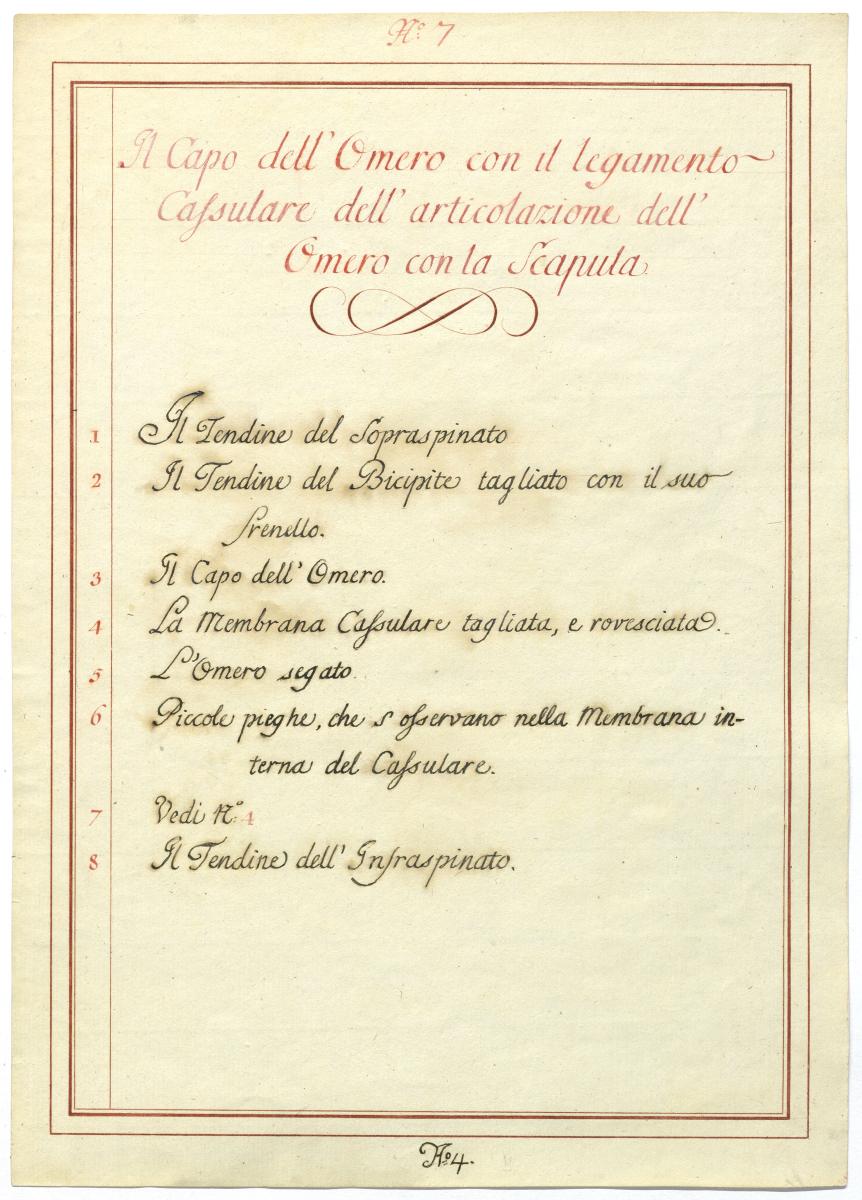 Nº. 7
Il Capo dell' Omero con il legamento
Caſsulare dell' articolazione dell'
Omero con la Scapula
1 Il Tendine del Sopraspinato
2 Il Tendine del Bicipite tagliato con il suo
frenello.
3 Il Capo dell' Omero.
4 La Membrana Caſsulare tagliata, e rovesciata.
5 L'Omero segato.
6 Piccole pieghe, che s' oſservano nella Membrana in-
terna del Caſsulare.
7 Vedi Nº. 4
8 Il Tendine dell' Infraspinato.
Nº 4.